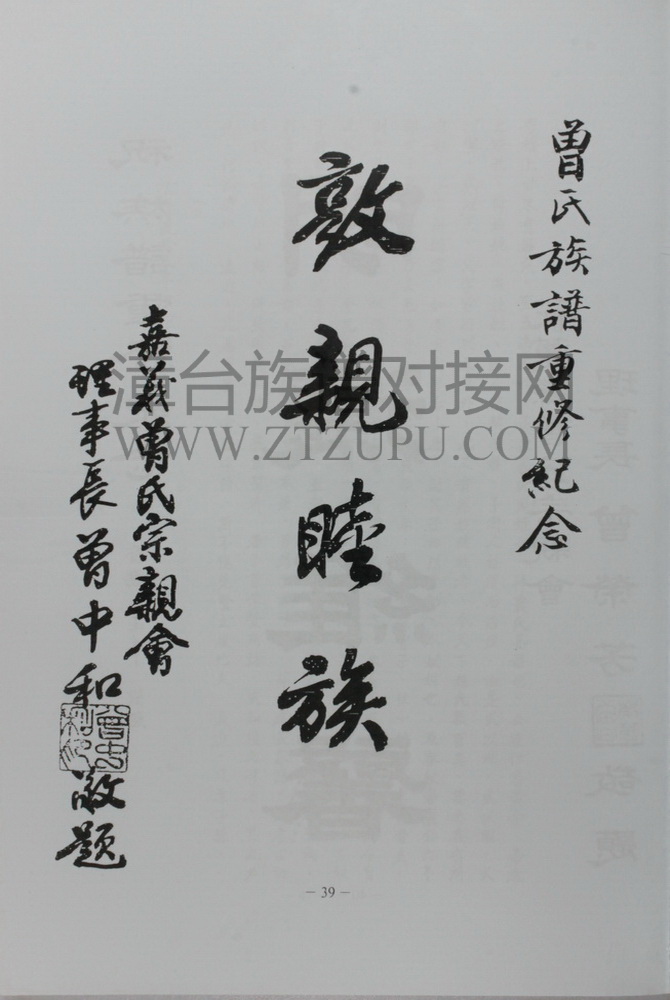 曾氏族譜重修紀念
敦親睦族
嘉義曾氏宗親會
理事長曾中和敬題
漳台族谱对接网
WWW.ZTZUPU.COM
－39－